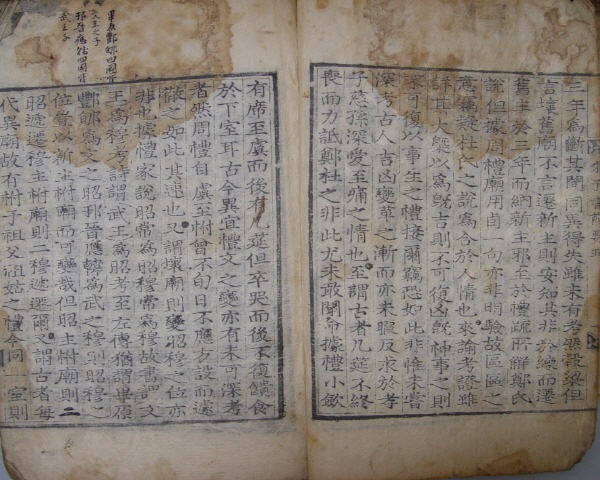 三年為斷其間同異得失雖未有考然穀梁但
言壞舊廟不言遷新主則安知其非於練而遷
舊主於三年而納新主邪至於禮疏所解鄭氏
說但據周禮廟用卣一句亦非明驗故區區之
意竊疑杜氏之說為合於人情也來諭考證雖
詳其大槩以為既吉則不可復凶既神事之則
不可復以事生之禮接爾竊恐如此非惟未嘗
深考古人吉凶變革之漸而亦未暇反求於孝
子慈孫深愛至痛之情也至謂古者几筵不終
喪而力詆鄭杜之非此尤未敢聞命據禮小斂
有席至虞而後有几筵但卒哭而後不復饋食
於下室耳古今異宜禮文之變亦有未可深考
者然周禮自虞至祔曾不旬日不應方設而遽
徹之如此其速也又謂壞廟則變昭穆之位亦
非也據禮家說昭常為昭穆常為穆故書謂文
王為穆考詩謂武王為昭考至左傳猶謂畢原
酆郇為文之昭邘晉應韓為武之穆則昭穆之
位豈以新主祔廟而可變哉但昭主祔廟則二
昭遞遷穆主祔廟則二穆遞遷爾又謂古者每
代異廟故有祔于祖父祖姑之禮今同一室則
畢原酆郇四國皆
文王之子
邘晉應韓四國皆
武王子